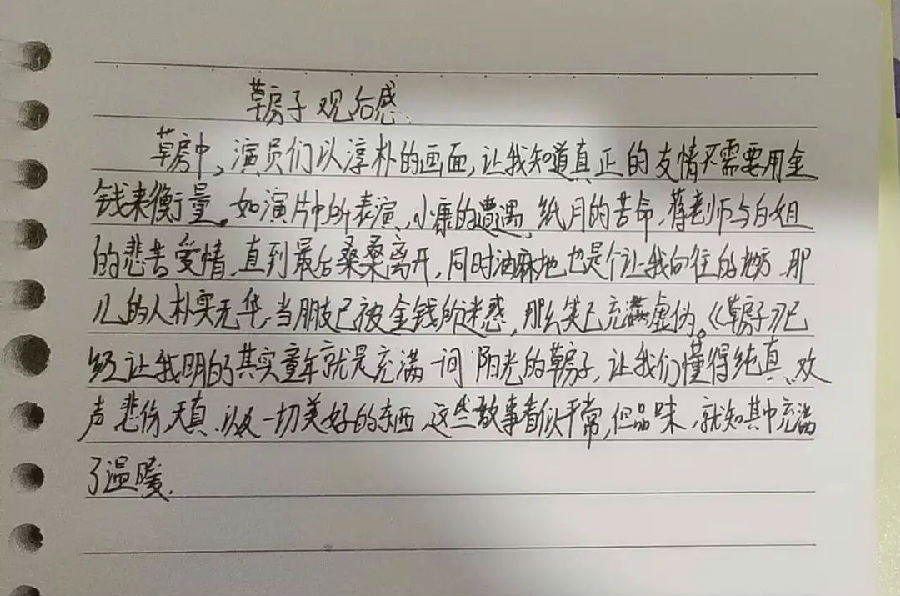 草房子观后感
草房中,演员们以淳朴的画面,让我知道真正的友情不需要用金
钱来衡量。如演片中的表演、小康的遭遇、纸月的苦命、蒋老师与白姐
的悲苦爱情、直到最后桑桑离开,同时油麻地也是个让我向往的地方、那
儿的人朴实无华,当朋友已被金钱所迷惑,那么笑已充满虚伪。《草房子》已
经让我明的其实童年就是充满一间阳光的草房子,让我们懂得纯真、欢
声、悲伤、天真、以及一切美好的东西,这些故事看似平常,但品味,就知其中充满
了温暖.